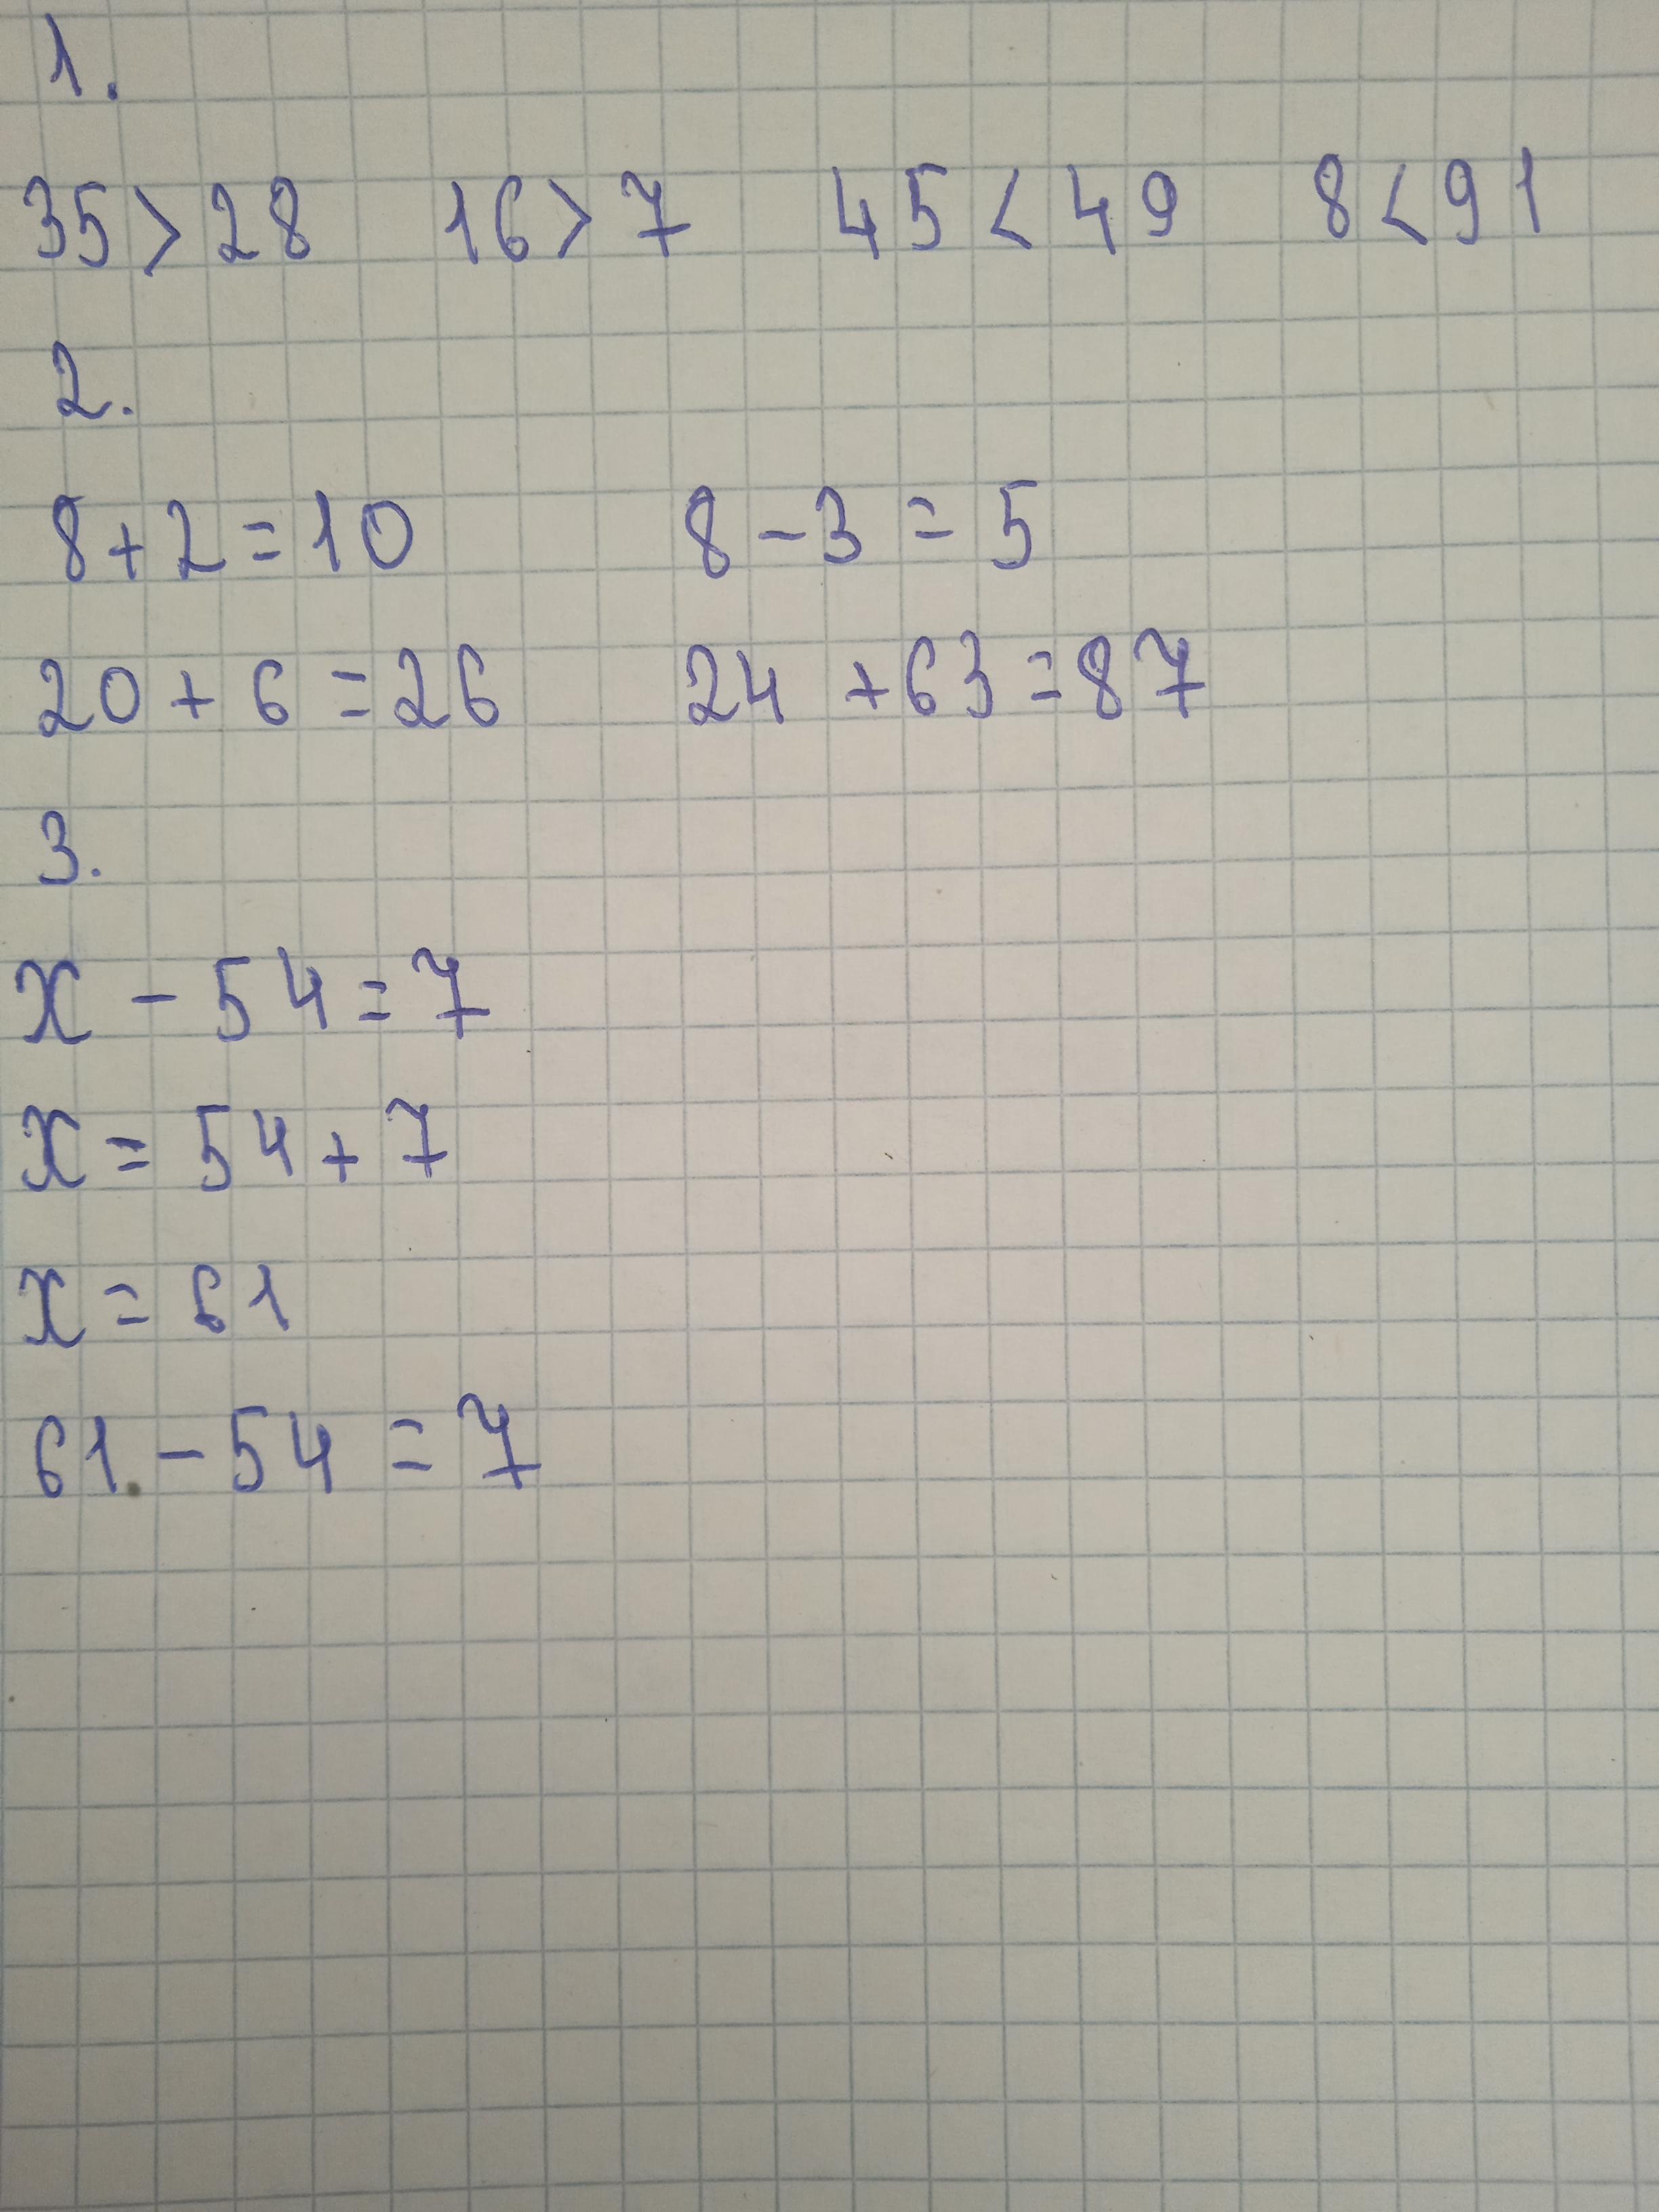 1.
35 > 28 16 > 7 45 < 49 8 < 91
2.
8 + 2 = 10 8 - 3 = 5
20 + 6 = 26 24 + 63 = 87
3.
x - 54 = 7
x = 54 + 7
x = 61
61 - 54 = 7